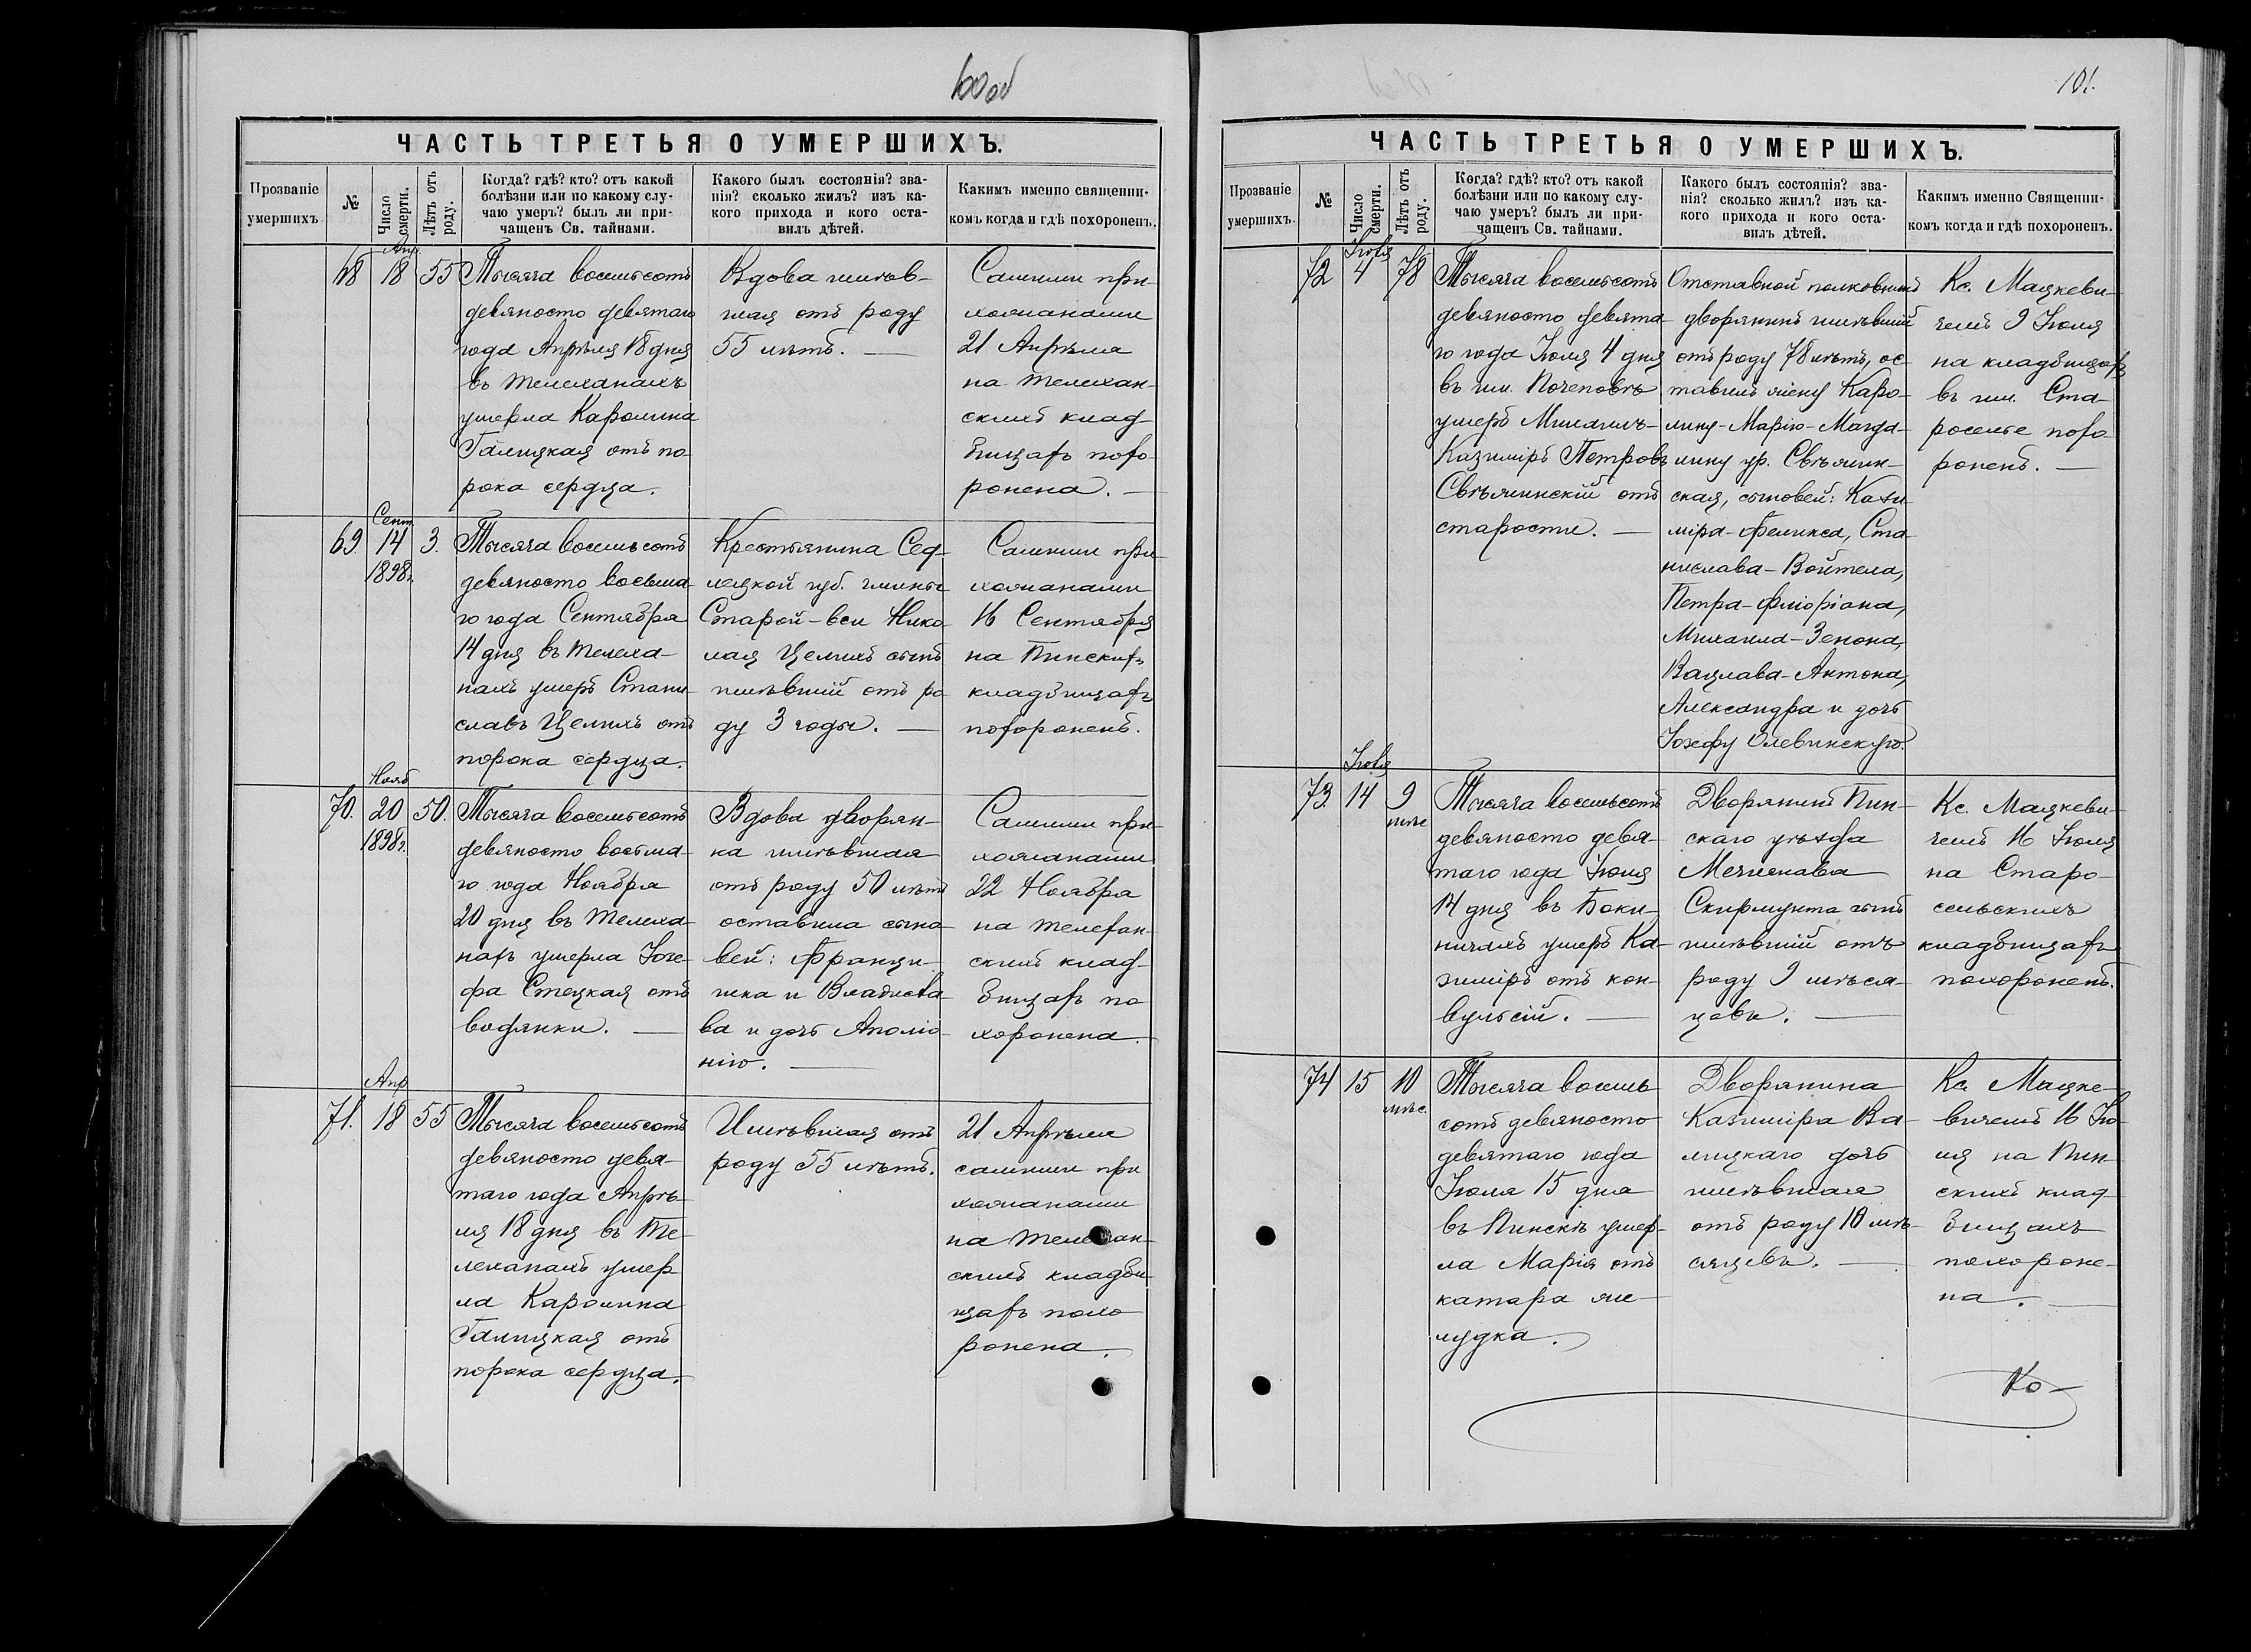 100об
ЧАСТЬ ТРЕТЬЯ О УМЕРШИХЪ.
Прозваніе умершихъ
№
Число смерти.
Лѣтъ отъ роду.
Когда? гдѣ? кто? отъ какой
болѣзни или по какому слу-
чаю умеръ? былъ ли при-
чащенъ Св. тайнами.
Какого былъ состоянія? зва-
нія? сколько жилъ? изъ ка-
кого прихода и кого оста-
вилъ дѣтей.
Какимъ именно священни-
комъ когда и гдѣ похороненъ.
68
Апр.
18
55
Тысяча восемьсотъ
девяносто девятаго
года Апрѣля 18 дня
въ Телеханахъ
умерла Каролина
Галицкая отъ по
рока сердца.
Вдова имѣв-
шая отъ роду
55 лѣтъ. —
Самими при-
хожанами
21 Апрѣля
на Телехан-
скихъ клад-
бищахъ похо-
ронена. —
69
Сент.
14
1898г.
3.
Тысяча восемьсотъ
девяносто восьма-
го года Сентября
14 дня въ Телеха-
нахъ умеръ Стани-
славъ Целихъ отъ
порока сердца.
Крестьянина Сед-
лецкой губ. гмины
Старой-вси Нико-
лая Целихъ сынъ
имѣвшій отъ ро
ду 3 годы. —
Самими при-
хожанами
16 Сентября
на Пинскихъ
кладбищахъ
похороненъ.
70.
Нояб
20
1898г.
50.
Тысяча восемьсотъ
девяносто восьма-
го года Ноября
20 дня въ Телеха-
нахъ умерла Іозе-
фа Стецкая отъ
водянки. —
Вдова дворян-
ка имѣвшая
отъ роду 50 лѣтъ
оставила сыно-
вей: Франци-
шка и Владисла-
ва и дочь Аполо-
нію. —
Самими при-
хожанами
22 Ноября
на Телехан-
скихъ клад-
бищахъ по
хоронена.
71.
Апр
18
55
Тысяча восемьсотъ
девяносто девя-
таго года Апрѣ-
ля 18 дня въ Те-
леханахъ умер
ла Каролина
Галицкая отъ
порока сердца.
Имѣвшая отъ
роду 55 лѣтъ.
21 Апрѣля
самими при
хожанами
на Телехан-
скихъ кладби
щахъ похо
ронена.
101.
ЧАСТЬ ТРЕТЬЯ О УМЕРШИХЪ.
Прозваніе умершихъ.
№
Число смерти.
Лѣтъ отъ роду.
Когда? гдѣ? кто? отъ какой
болѣзни или по какому слу-
чаю умеръ? былъ ли при-
чащенъ Св. тайнами.
Какого былъ состоянія? зва-
нія? сколько жилъ? изъ ка-
кого прихода и кого оста-
вилъ дѣтей.
Какимъ именно Священни-
комъ когда и гдѣ похороненъ.
72
Іюля
4
78
Тысяча восемьсотъ
девяносто девята-
го года Іюля 4 дня
въ им. Почеповѣ
умеръ Михаилъ-
Казиміръ Петровъ
Свѣжинскій отъ
старости. —
Отставной полковникъ
дворянинъ имѣвшій
отъ роду 78 лѣтъ, ос
тавилъ жену Каро-
лину-Марію-Магда-
лину ур. Свѣжин-
ская, сыновей: Кази
міра-Феликса, Ста
нислава-Войтела,
Петра-Флоріана,
Михаила-Зенона,
Вацлава-Антона,
Александра и дочь
Іозефу Олевинскую.
Кс. Мацкеви-
чемъ 9 Іюля
на кладбищахъ
въ им. Ста-
роселье похо
роненъ. —
73.
Іюля
14
9
мѣс
Тысяча восемьсотъ
девяносто девя-
таго года Іюля
14 дня въ Боки-
ничахъ умеръ Ка-
зиміръ отъ кон-
вульсій. —
Дворянинъ Пин-
скаго уѣзда
Мечислава
Скирмунта сынъ
имѣвшій отъ
роду 9 мѣся-
цевъ. —
Кс. Мацкеви-
чемъ 16 Іюля
на Старо-
сельскихъ
кладбищахъ
похороненъ.
74
15
10
мѣс.
Тысяча восемь
сотъ девяносто
девятаго года
Іюля 15 дня
въ Пинскѣ умер-
ла Марія отъ
катара же-
лудка.
Дворянина
Казиміра Ва-
лицкаго дочь
имѣвшая
отъ роду 10 мѣ-
сяцевъ. —
Кс. Мацке-
вичемъ 16 Ію-
ля на Пин-
скихъ клад
бищахъ
похороне-
на. —
Ко-